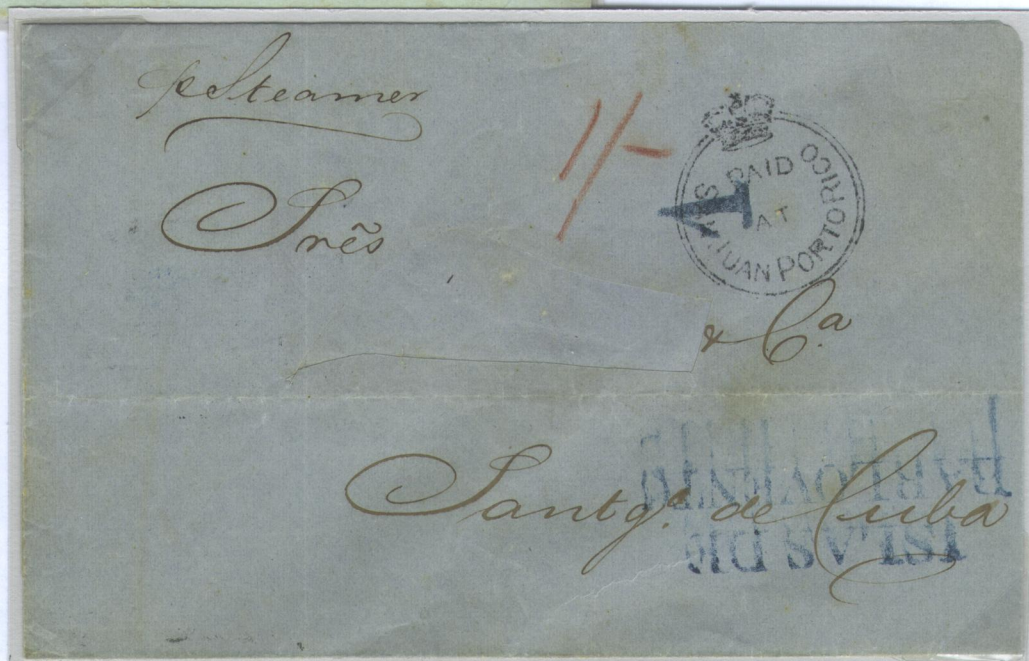 p Steamer
1/-
PAID
AT
SAN JUAN PORTO RICO
1
Srẽs
& Cª
Santgº de Cuba
ISLAS DE
BARLOVENTO